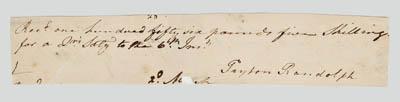 Recd. one hundred fifty six pounds five Shillings
for a Qrs Saly to the 6th. Inst.
Peyton Randolph